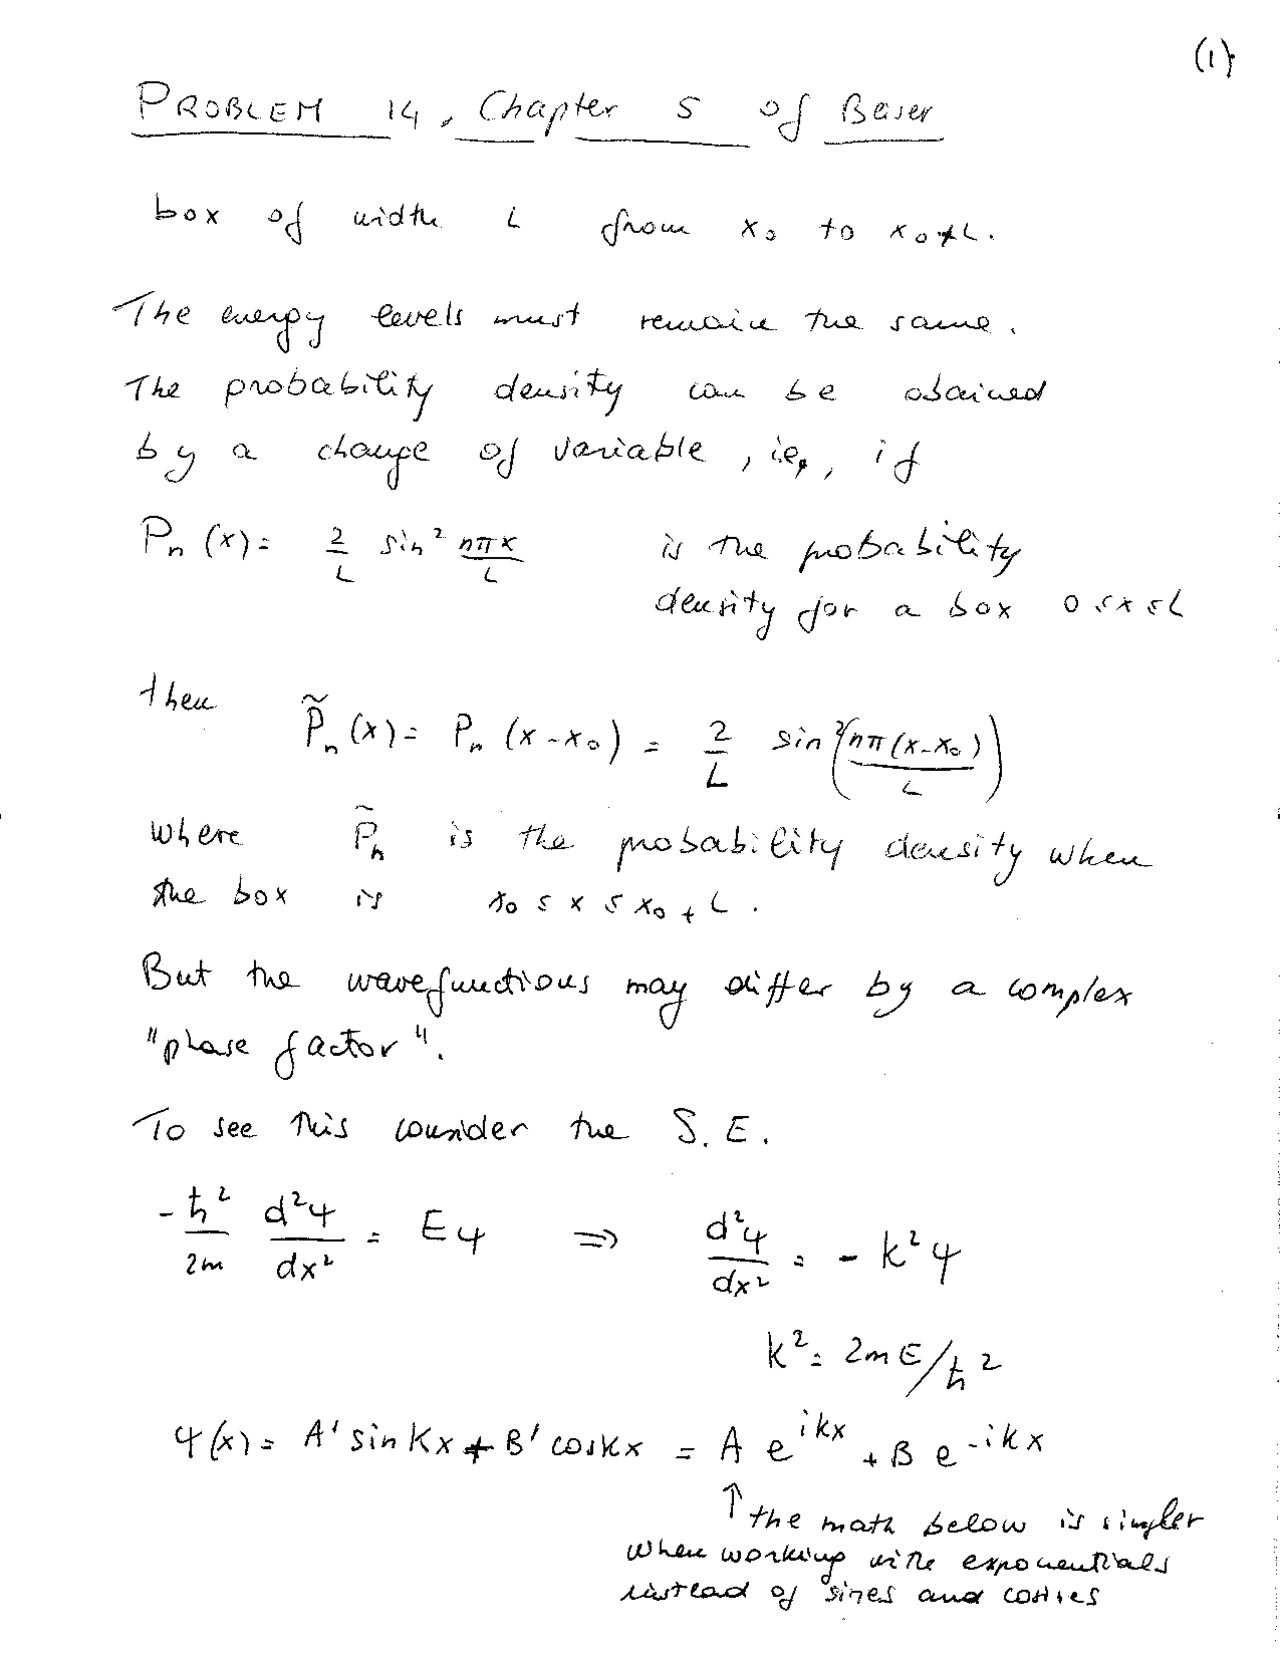 (1)
PROBLEM 14, Chapter 5 of Beiser
box of width L from x₀ to x₀+L.
The energy levels must remain the same.
The probability density can be obained
by a change of variable, i.e., if
Pₙ(x) = 2/L sin² nπx/L is the probability
density for a box 0≤x≤L
then P̃ₙ(x) = Pₙ(x-x₀) = 2/L sin²(nπ(x-x₀)/L)
where P̃ₙ is the probability density when
the box is x₀ ≤ x ≤ x₀+L.
But the wavefunctions may differ by a complex
"phase factor".
To see this consider the S.E.
-ħ²/2m d²ψ/dx² = Eψ ⇒ d²ψ/dx² = -k²ψ
k² = 2mE/ħ²
ψ(x) = A' sin kx + B' cos kx = A e^{ikx} + B e^{-ikx}
↑ the math below is simpler
when working with exponentials
instead of sines and cosines